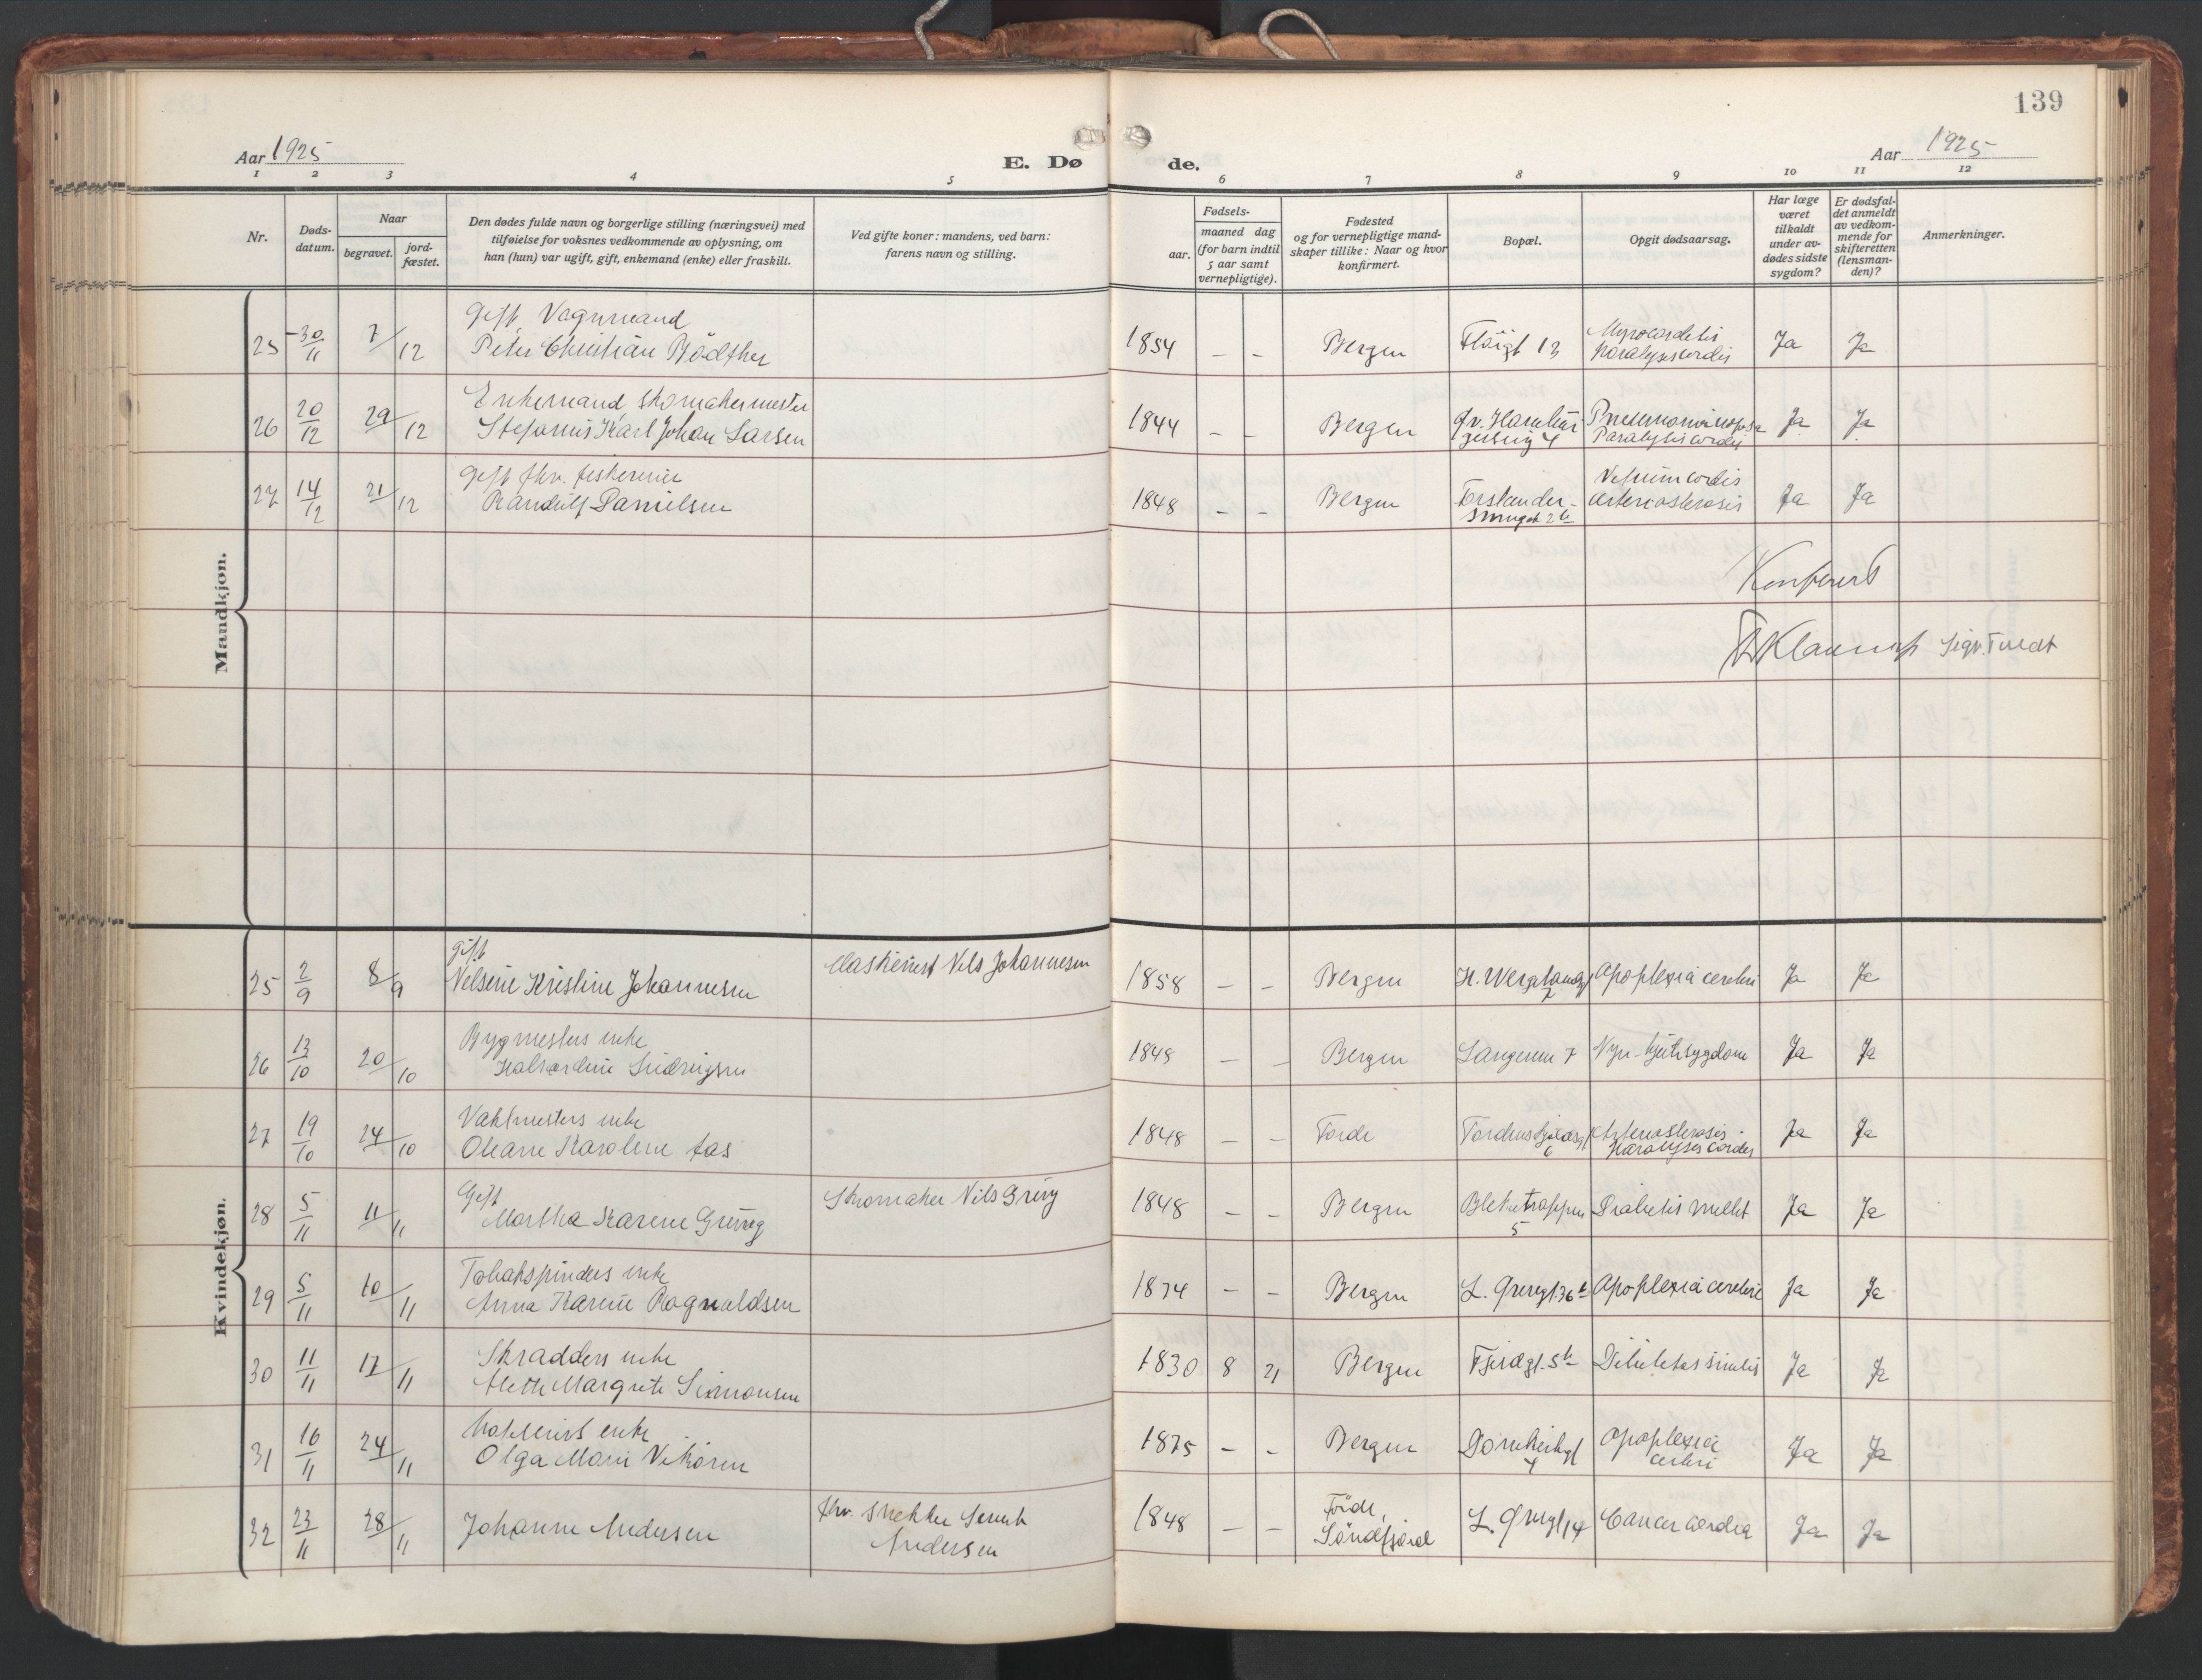 139
Aar 1925
E. Dø
de.
Aar 1925
1 2 3 4 5 6 7 8 9 10 11 12
Nr.
Døds-
datum.
Naar
begravet.
jord-
fæstet.
Den dødes fulde navn og borgerlige stilling (næringsvei) med
tilføielse for voksnes vedkommende av oplysning, om
han (hun) var ugift, gift, enkemand (enke) eller fraskilt.
Ved gifte koner: mandens, ved barn:
farens navn og stilling.
Fødsels-
aar.
maaned dag
(for barn indtil
5 aar samt
vernepligtige).
Fødested
og for vernepligtige mand-
skaper tillike: Naar og hvor
konfirmert.
Bopæl.
Opgit dødsaarsag.
Har læge
været
tilkaldt
under av-
dødes sidste
sygdom?
Er dødsfal-
det anmeldt
av vedkom-
mende for
skifteretten
(lensman-
den)?
Anmerkninger.
Mandkjøn.
Gift, Vognmand
25 30/11 7/12 Peter Christian Bödtker 1854 – – Bergen Fløigt 13 Myocarditis
Paralysis cordis Ja Ja
Enkemand, Skomakermester
26 20/12 29/12 Stefanus Karl Johan Larsen 1844 – – Bergen 4 Paralysis cordis Ja Ja
Gift fhv.
27 14/12 21/12 Randulf Danielsen 1848 – – Bergen Forstander-
smuget 2b Vitium cordis
arteriosklerosis Ja Ja
Konferert
Sigv. Tvedt
Kvindekjøn.
gift
25 2/9 8/9 Nilsine Kristine Johannesen Maskinist Nils Johannesen 1858 – – Bergen H. Wergelandsgt
7 Apoplexia cerebri Ja Ja
Bygmesters enke
26 13/10 20/10 1848 – – Bergen 7 Nyre-hjertesygdom Ja Ja
Vaktmesters enke
27 19/10 24/10 Oleane Karoline Aas 1848 – – Førde Tordenskjoldsgt
6 Arteriosklerosis
Paralysis cordis Ja Ja
Gift
28 5/11 11/11 Martha Karine Grieg Skomaker Nils Grieg 1848 – – Bergen Bleketrappen
5 Diabetes mellit Ja Ja
Tobakspinders enke
29 5/11 10/11 Anna Karine Ragnvaldsen 1834 – – Bergen 36b Apoplexia cerebri Ja Ja
Skrædders enke
30 11/11 17/11 Mette Margrete Simonsen 1830 8 21 Bergen Fjeldgt. 5b Debilitas senilis Ja Ja
enke
31 16/11 24/11 Olga Marie Vikøren 1875 – – Bergen Domkirkegt
4 Apoplexia
cerebri Ja Ja
32 23/11 28/11 Johanne Andersen fhv. Snekker
Andersen 1848 – – Förde,
Söndfjord 14 Cancer Ja Ja